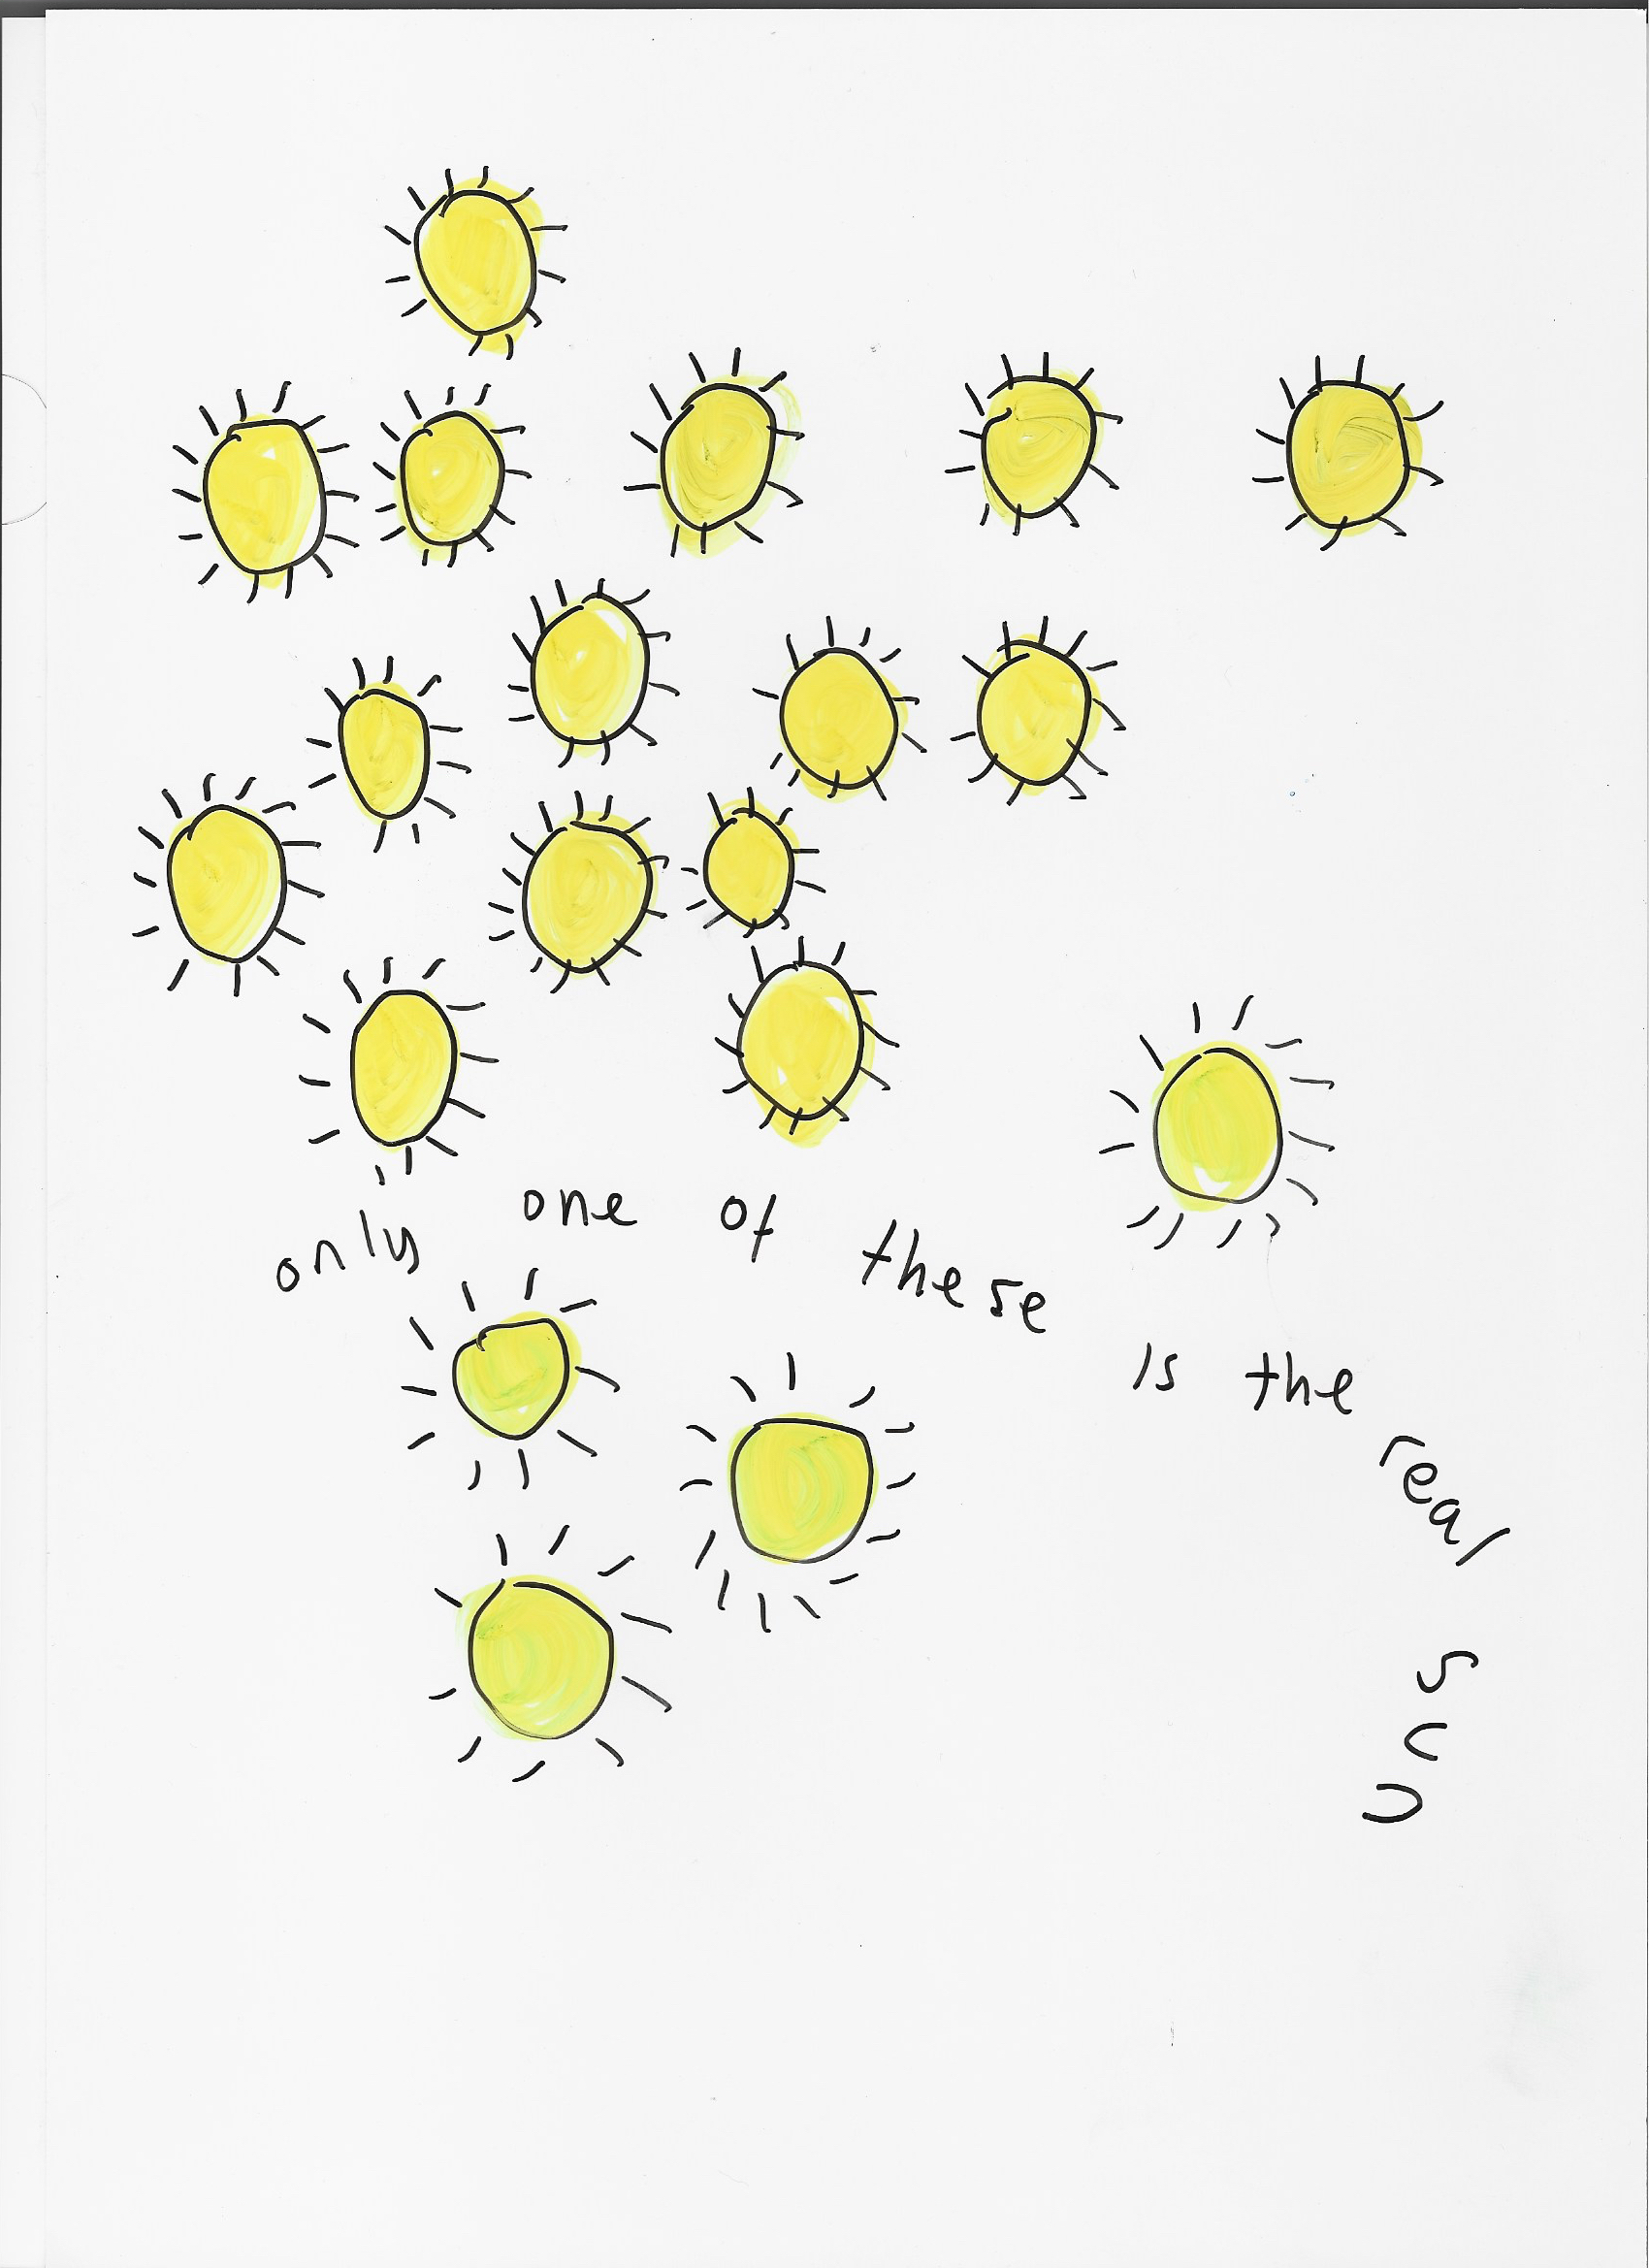 only one of these is the real sun